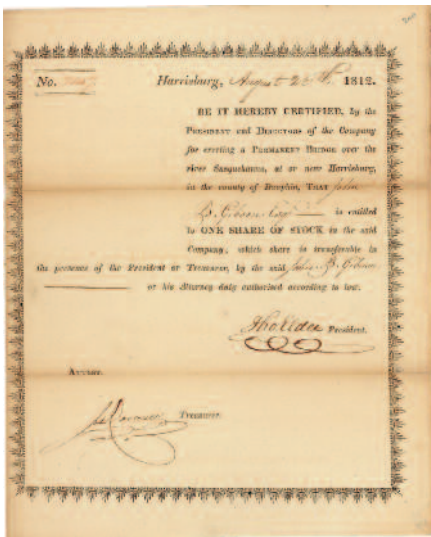 No.
Harrisburg, August 1812.
BE IT HEREBY CERTIFIED, by the
PRESIDENT and DIRECTORS of the Company
for erecting a PERMANENT BRIDGE over the
river Susquehanna, at or near Harrisburg,
in the county of Dauphin, THAT John
B. Gibson Esqr is entitled
to ONE SHARE OF STOCK in the said
Company, which share is transferable in
the presence of the President or Treasurer, by the said John B. Gibson
or his Attorney duly authorised according to law.
Tho Elder President.
ATTEST.
Treasurer.